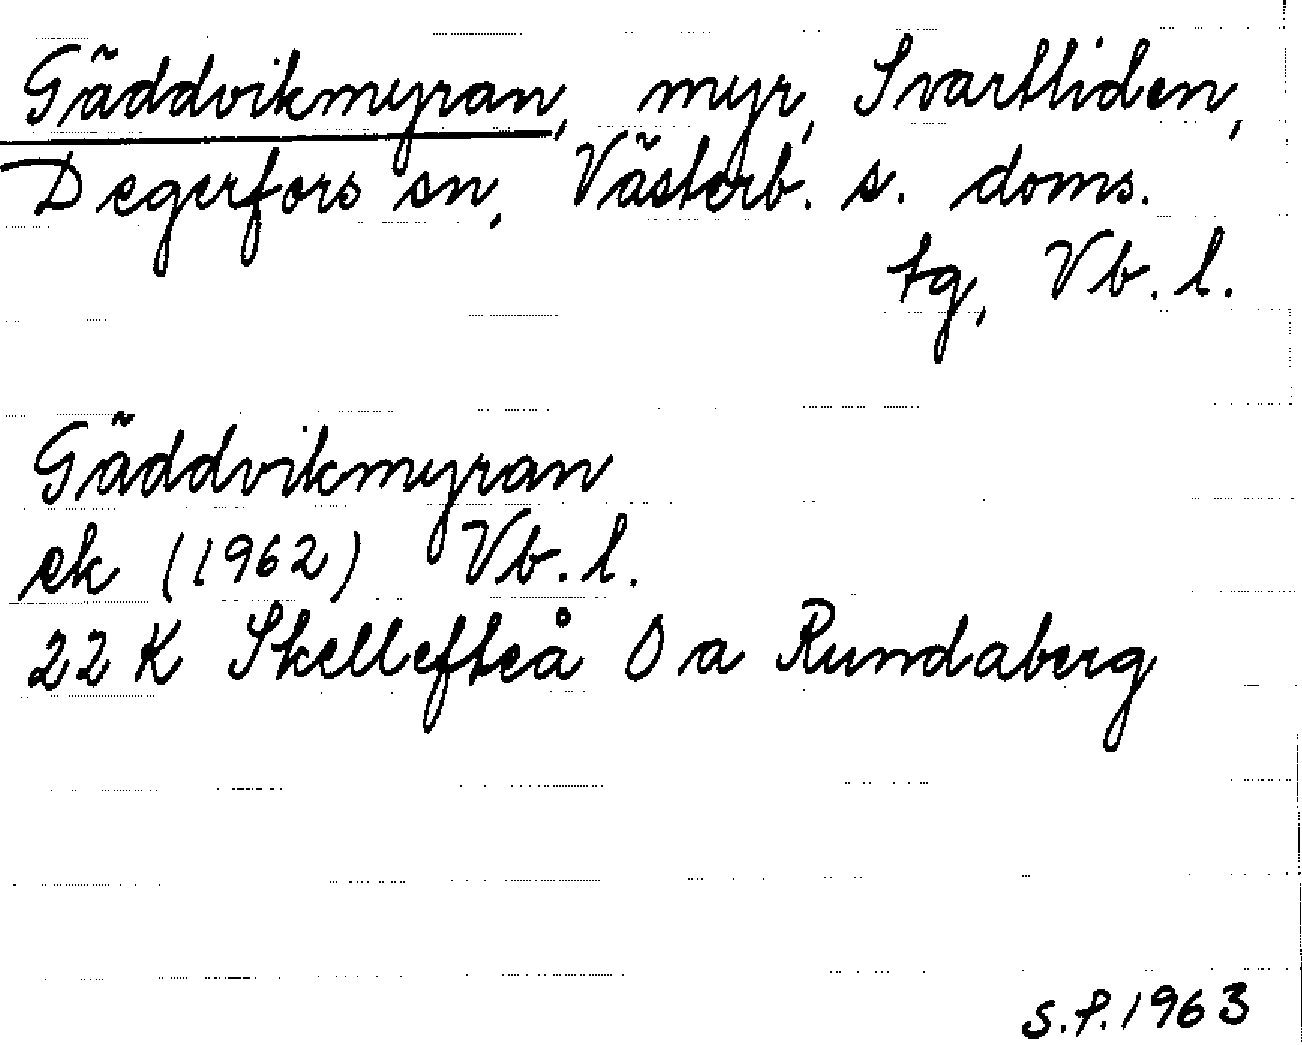 Gäddvikmyran, myr, Svartliden,
Degerfors sn, Västerb. s. doms.
tg, Vb. l.
Gäddvikmyran
ek (1962) Vb. l.
22 K Skellefteå O a Rundaberg
S.P. 1963